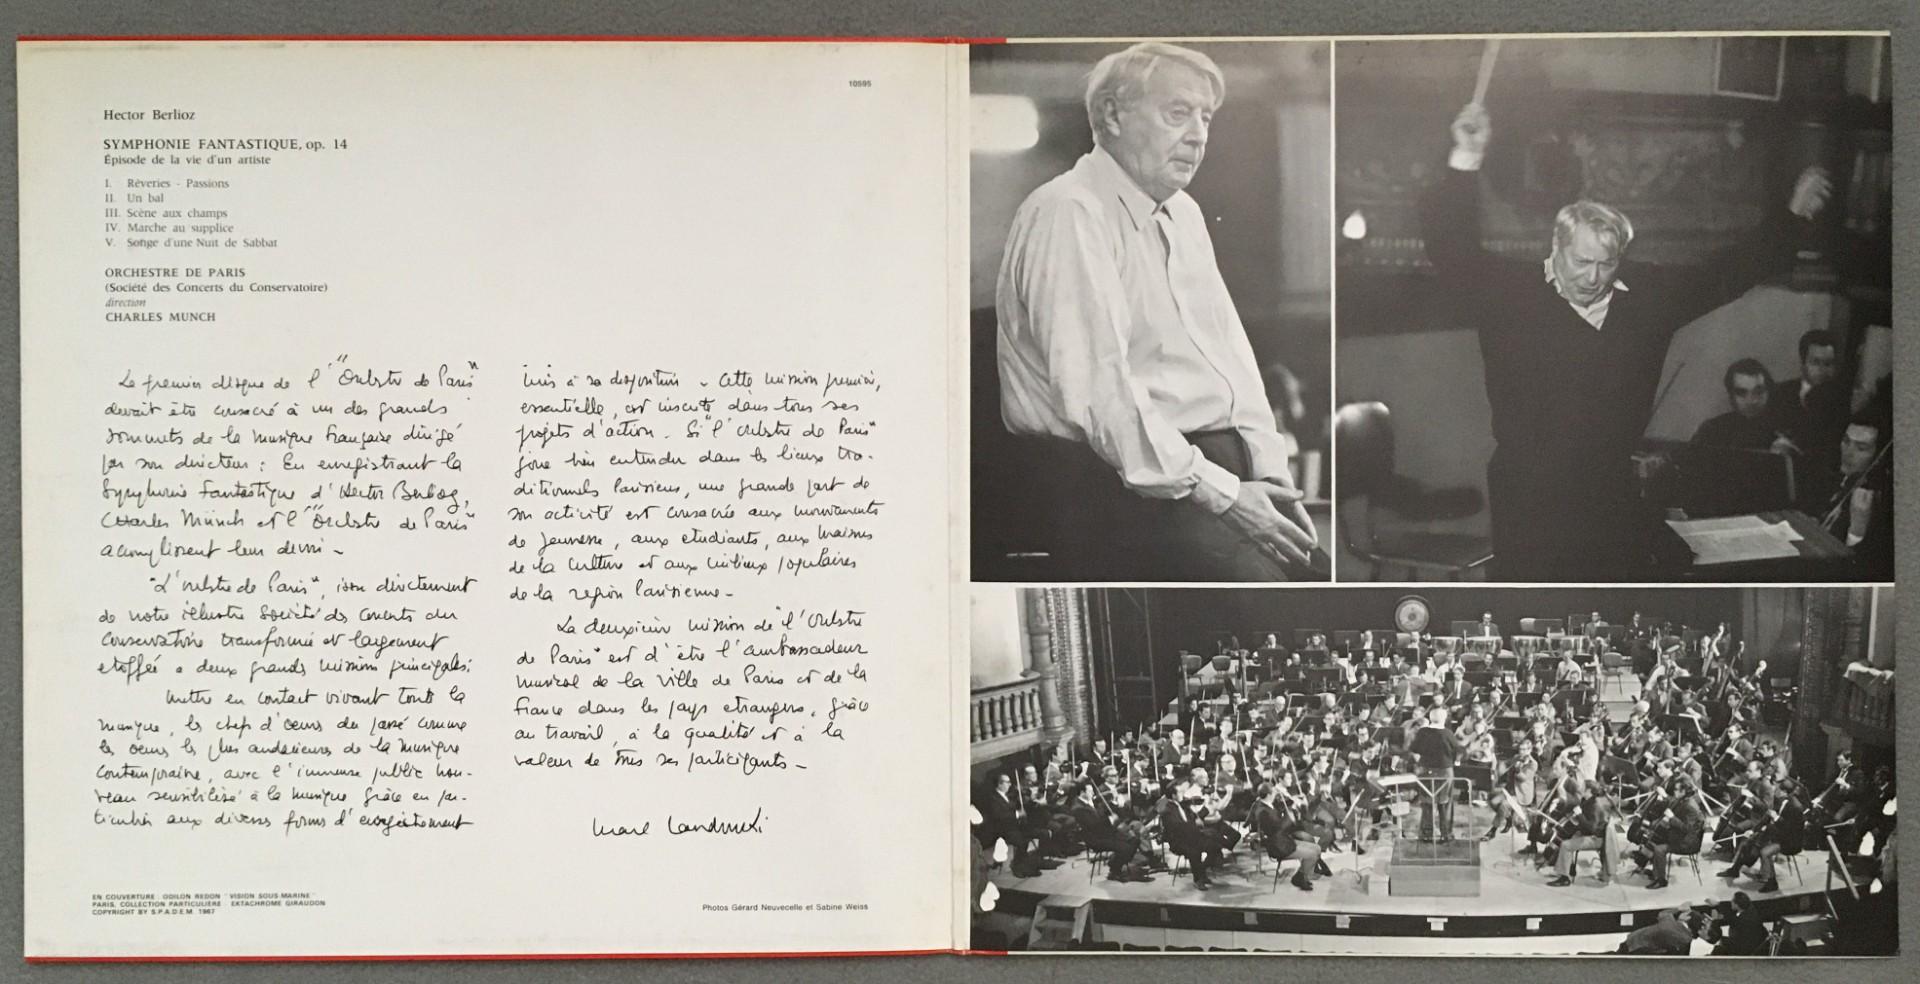 10595
Hector Berlioz
SYMPHONIE FANTASTIQUE, op. 14
Épisode de la vie d'un artiste
I. Rêveries - Passions
II. Un bal
III. Scène aux champs
IV. Marche au supplice
V. Songe d'une Nuit de Sabbat
ORCHESTRE DE PARIS
(Société des Concerts du Conservatoire)
direction
CHARLES MUNCH
Le premier disque de l'"Orchestre de Paris"
devait être consacré à un des grands
sommets de la musique française dirigé
par son directeur : En enregistrant la
Symphonie Fantastique d'Hector Berlioz,
Charles Münch et l'"Orchestre de Paris"
accomplissent leur devoir -
"L'orchestre de Paris", issu directement
de notre illustre Société des Concerts du
Conservatoire transformée et largement
étoffée a deux grandes missions principales :
Mettre en contact vivant toute la
musique, les chefs d'oeuvre du passé comme
les oeuvres les plus audacieuses de la musique
contemporaine, avec l'immense public nou-
veau sensibilisé à la musique grâce en par-
ticulier aux diverses formes d'enregistrement
mis à sa disposition - Cette mission première,
essentielle, est inscrite dans tous ses
projets d'action - Si l'"orchestre de Paris"
joue bien entendu dans les lieux tra-
ditionnels Parisiens, une grande part de
son activité est consacrée aux mouvements
de jeunesse, aux étudiants, aux maisons
de la culture et aux milieux populaires
de la région Parisienne -
La deuxième mission de "l'Orchestre
de Paris" est d'être l'ambassadeur
musical de la ville de Paris et de la
France dans les pays étrangers, grâce
au travail, à la qualité et à la
valeur de tous ses participants -
Marcel Landowski
EN COUVERTURE : ODILON REDON "VISION SOUS-MARINE"
PARIS, COLLECTION PARTICULIÈRE - EKTACHROME GIRAUDON
COPYRIGHT BY S.P.A.D.E.M. 1967
Photos Gérard Neuvecelle et Sabine Weiss